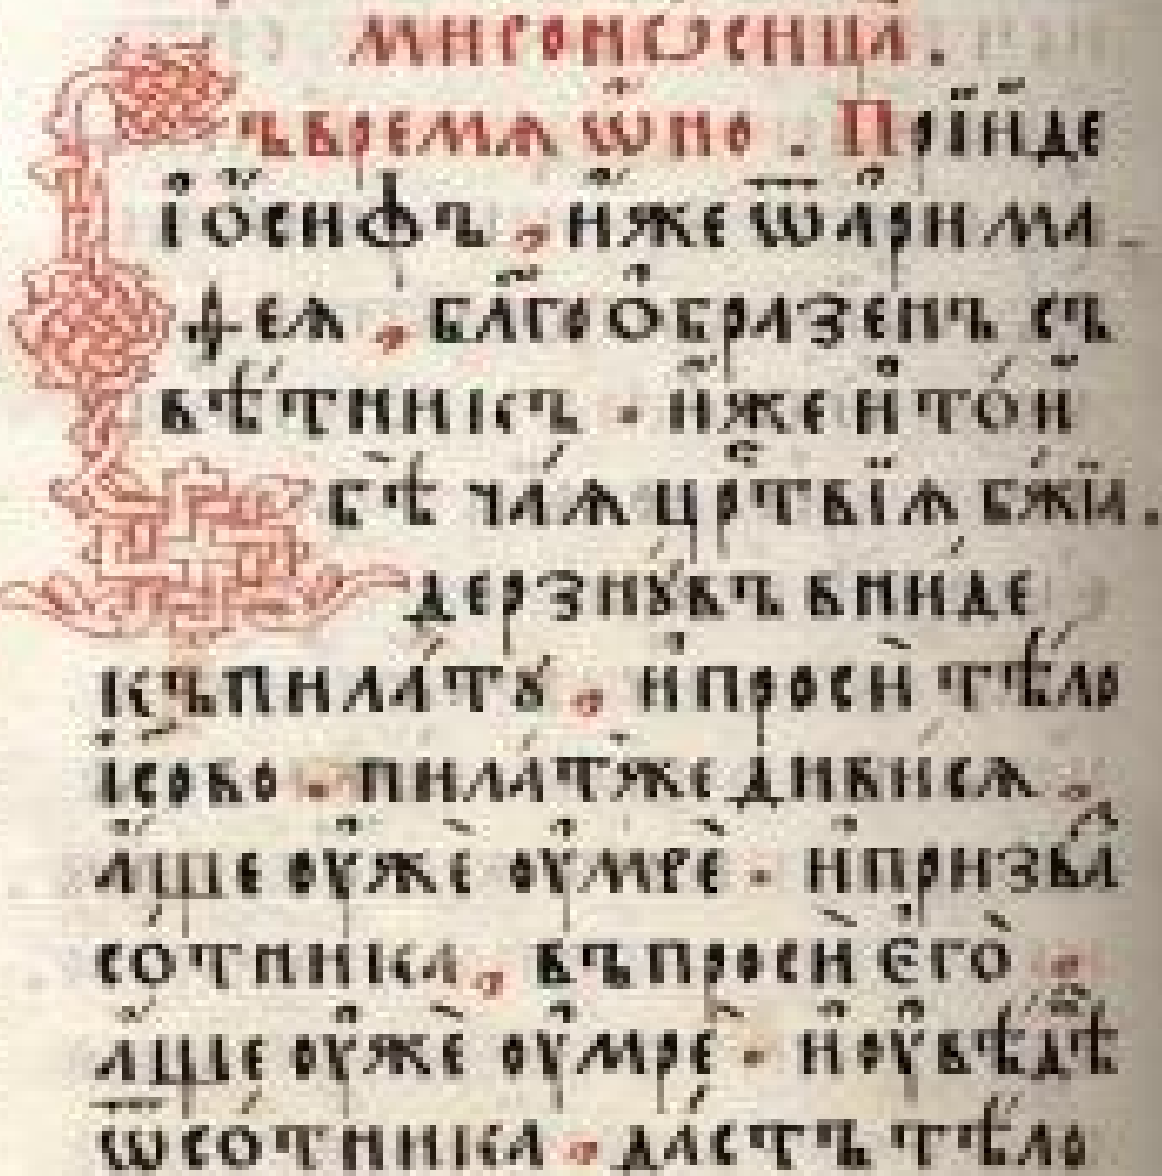 мѵроносица.
Въ времѧ ѡ҆но. Прїи҆де
і҆о҆сифъ, и҆же ѿ арима
феѧ, бл҃гоо҆бразенъ съ
вѣ́тникъ. и҆же и҆ то́и҆
бѣ ча́ѧ црⷭ҇твїѧ бж҃їѧ.
дерзнꙋ́въ вни́де
къ пила́тꙋ, и҆ просѝ тѣ́ло
і҆сово. пила́тже диви́сѧ.
а҆́ще оу҆жѐ оу҆мрѐ. и҆ призва
со́тника, въпросѝ є҆гѡ̀.
а҆́ще оу҆жѐ оу҆мрѐ. и҆ оу҆вѣ́дѣ
ѿ со́тника, да́стъ тѣ́ло